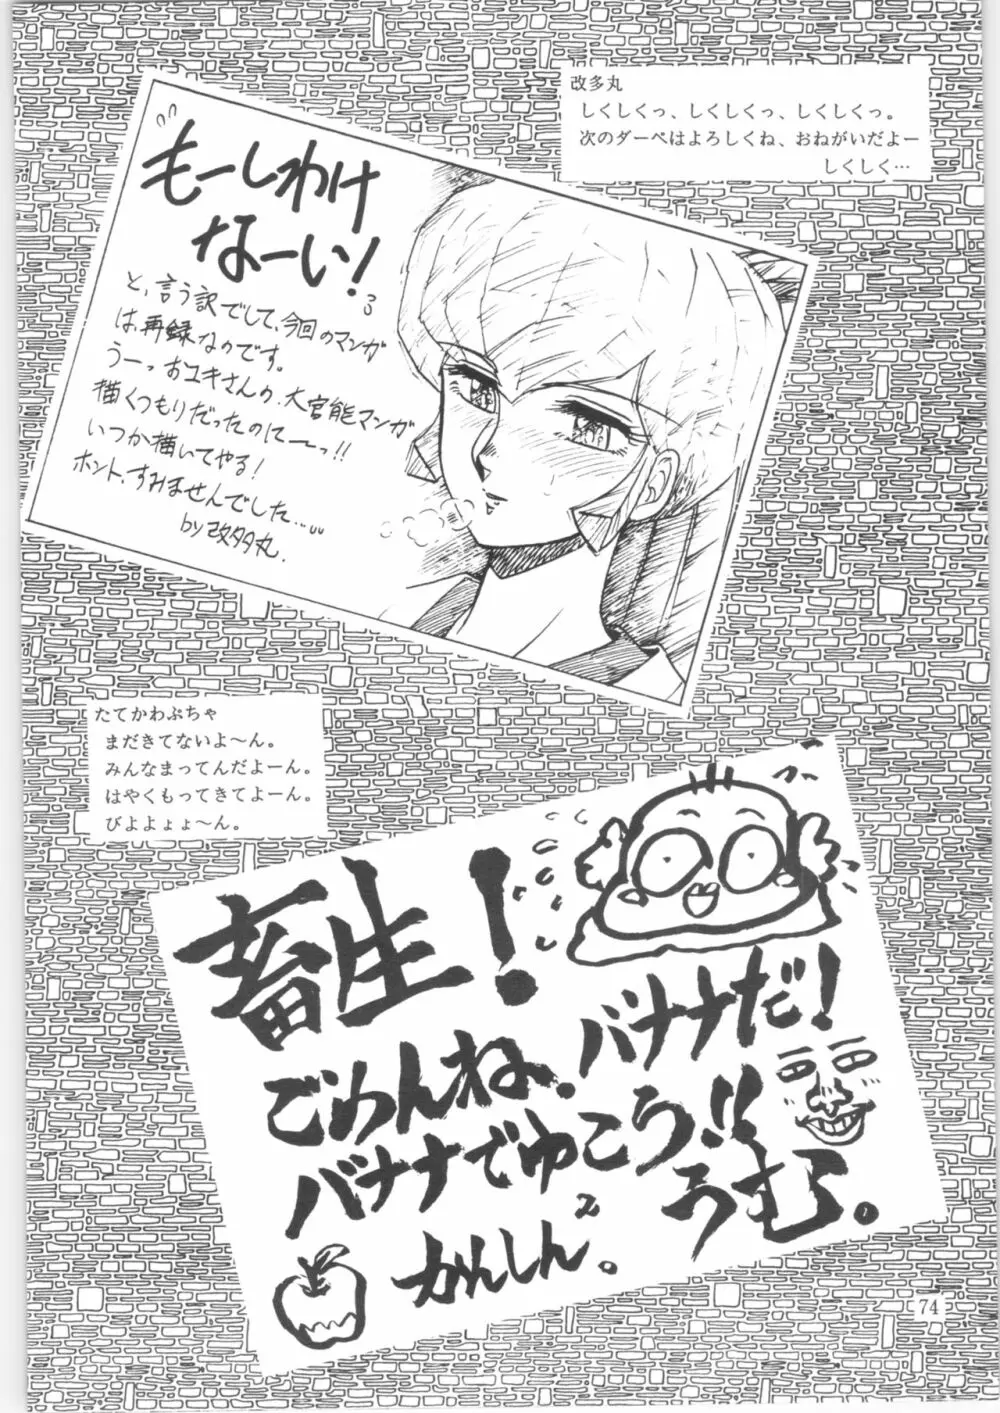 改多丸
しくしくっ、しくしくっ、しくしくっ。
次のダーペはよろしくね、おねがいだよー
しくしく…
もーしわけ
なーい!
と、言う訳でして、今回のマンガ
は、再録なのです。
うーっおユキさんの、大官能マンガ
描くつもりだったのにーっ!!
いつか描いてやる!
ホント、すみませんでした…
by改多丸.
たてかわぷちゃ
まだきてないよ〜ん。
みんなまってんだよーん。
はやくもってきてよーん。
びよよょょ〜ん。
畜生!
ごめんね、バナナだ!
バナナでゆこう!!
うむ。
かんしん²。
74